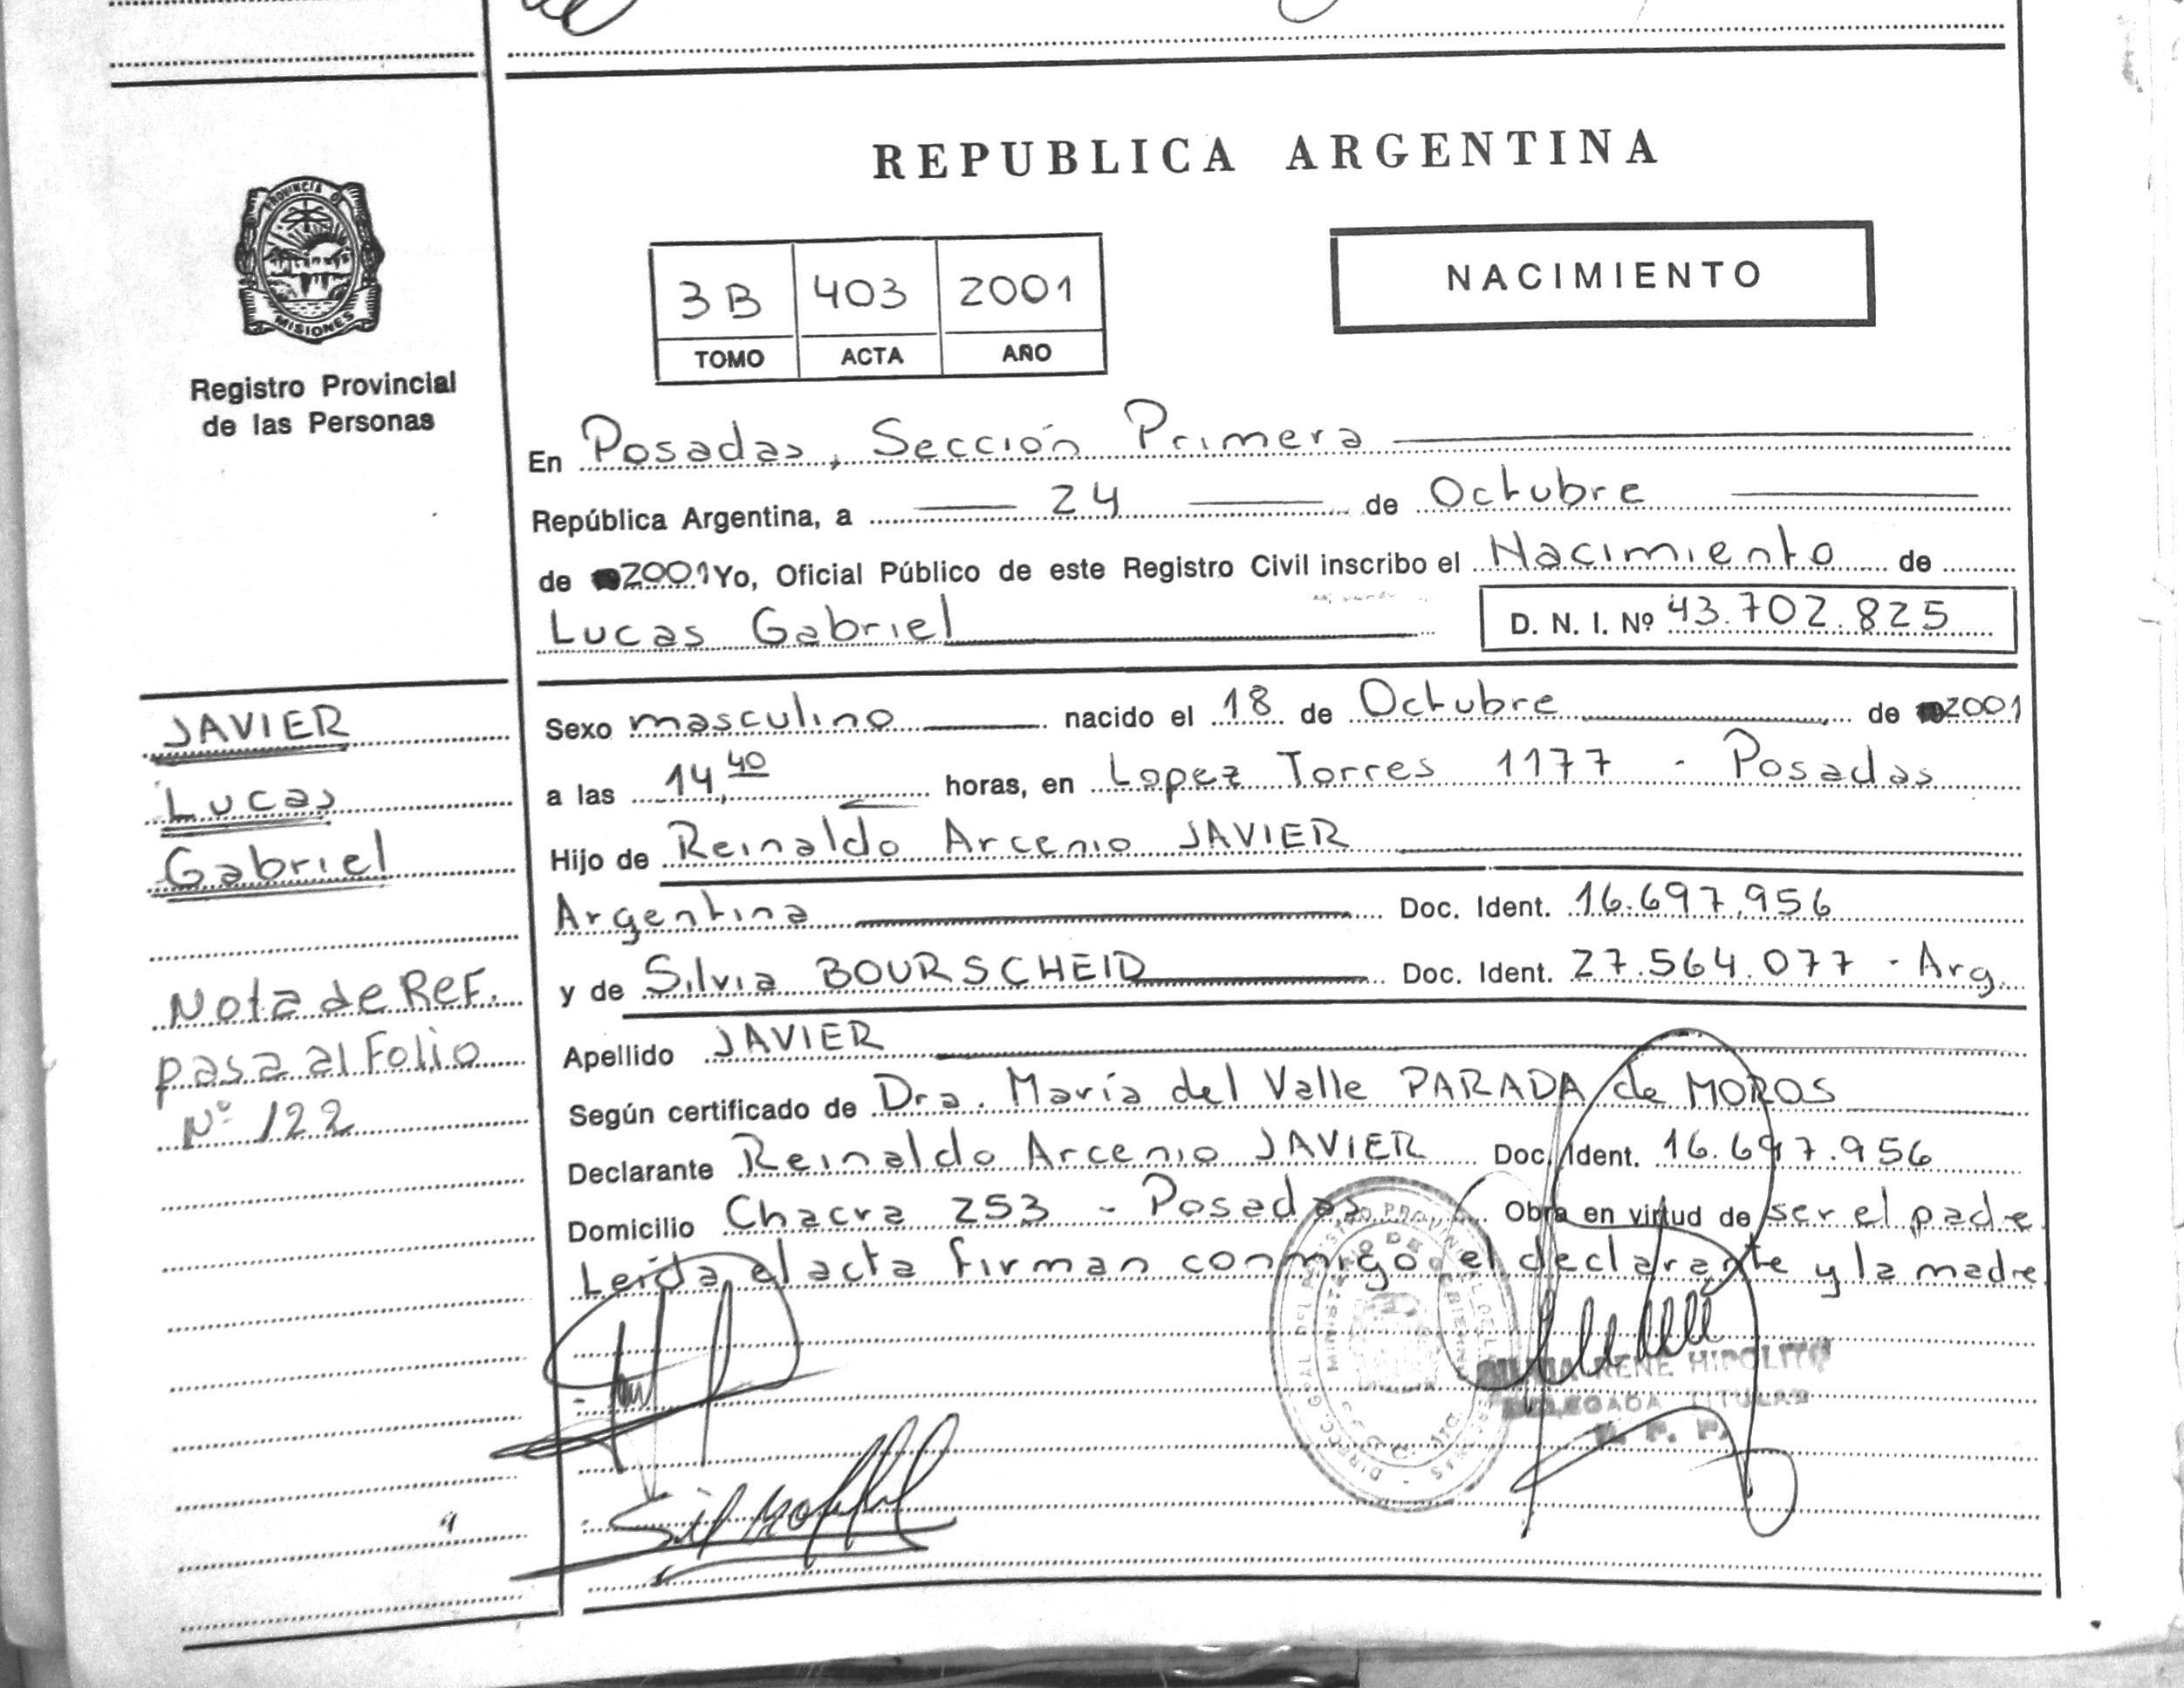 REPUBLICA ARGENTINA
PROVINCIA DE
MISIONES
Registro Provincial
de las Personas
3B 403 2001
TOMO ACTA AÑO
NACIMIENTO
En Posadas, Sección Primera
República Argentina, a 24 de Octubre
de 2001 Yo, Oficial Público de este Registro Civil inscribo el Nacimiento de
Lucas Gabriel D. N. I. Nº 43.702.825
JAVIER
Lucas
Gabriel
Nota de Ref.
pasa al Folio
Nº 122
Sexo masculino nacido el 18 de Octubre de 2001
a las 14,40 horas, en Lopez Torres 1177 - Posadas
Hijo de Reinaldo Arcenio JAVIER
Argentina Doc. Ident. 16.697.956
y de Silvia BOURSCHEID Doc. Ident. 27.564.077 - Arg.
Apellido JAVIER
Según certificado de Dra. María del Valle PARADA de MOROS
Declarante Reinaldo Arcenio JAVIER Doc. Ident. 16.697.956
Domicilio Chacra 253 - Posadas Obra en virtud de ser el padre
Leída el acta firman conmigo el declarante y la madre
IRENE HIPOLITO
DELEGADA TITULAR